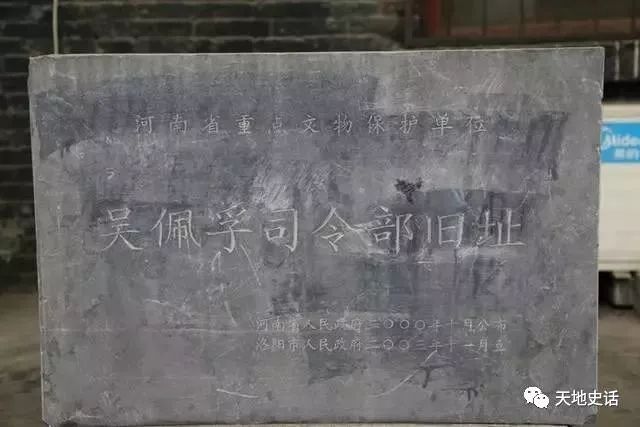 河南省重点文物保护单位
吴佩孚司令部旧址
河南省人民政府二〇〇〇年十月公布
洛阳市人民政府二〇〇三年十一月立
Midea
美的
天地史话